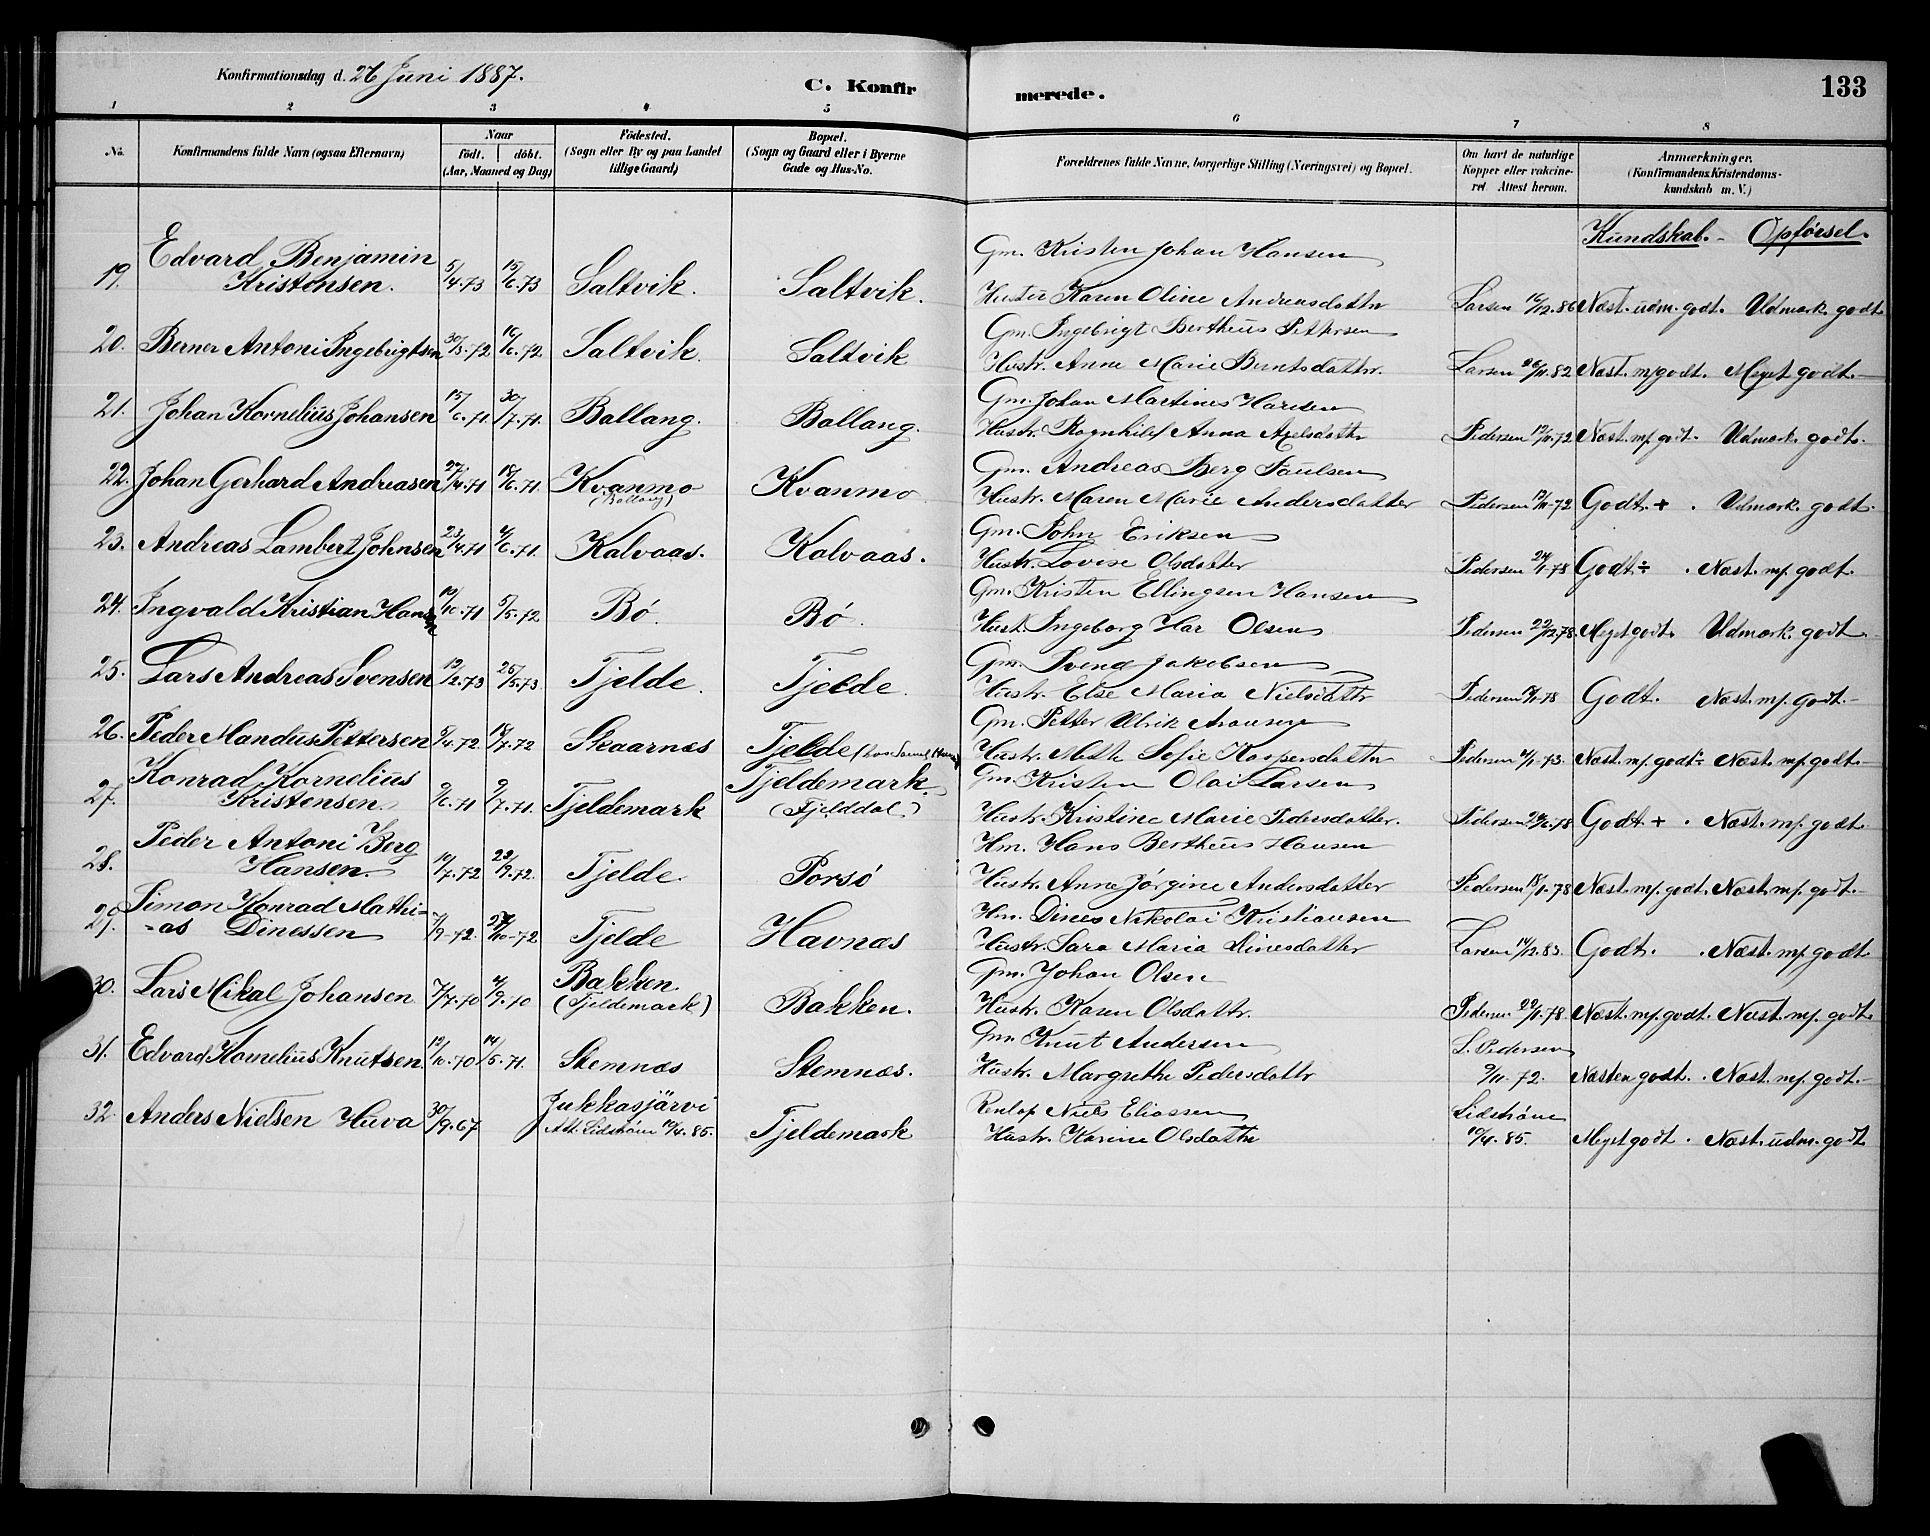 Konfirmationsdag d. 26 Juni 1887.
C. Konfirmerede.
133
1 2 3 4 5 6 7 8
No.
Konfirmandens fulde Navn (ogsaa Efternavn)
Naar
født. | döbt.
(Aar, Maaned og Dag)
Födested.
(Sogn eller By og paa Landet
tillige Gaard)
Bopæl.
(Sogn og Gaard eller i Byerne
Gade og Hus-No.
Forældrenes fulde Navne, borgerlige Stilling (Næringsvei) og Bopæl.
Om havt de naturlige
Kopper eller vakcine-
ret Attest herom.
Anmærkninger.
(Konfirmandens Kristendoms-
kundskab m. V.)
Kundskab. - Opførsel.
Edvard Benjamin Gm. Kristen Johan Hansen
19. Kristensen. 5/4.73 15/6.73 Saltvik. Saltvik. Hustru Karen Oline Andreasdatter Larsen 16/12.86 Næst. udm. godt. Udmærk. godt
20. Berner Antoni Ingebrigtsen 30/3.72 16/6.72 Saltvik. Saltvik Gm. Ingebrigt Bertheus Pettersen
Hustr. Anne Marie Berntsdatter. Larsen 26/11.82 Næst. m/godt. Meget godt.
21. Johan Kornelius Johansen 15/6.71 30/7.71. Ballang. Ballang. Gm. Johan Martinus Hansen
Hustr. Ragnhild Anna Axelsdatter Pedersen 12/11.72 Næst. m/ godt. Udmærk. godt.
22. Johan Gerhard Andreasen 27/4.71 18/6.71. Kvanmo (Ballang) Kvanmo Gm. Andreas Berg Paulsen
Hustr. Maren Marie Andersdatter Pedersen 12/11-72 Godt + . Udmærk. godt.
23. Andreas Lambert Johnsen 23/4.71 4/6.71. Kalvaas. Kalvaas. Gm. John Eriksen
Hustr. Lovise Olsdatter Pedersen 24/1-78 Godt ÷ . Næst. m/. godt.
24. Ingvald Kristian Hansen 19/10.71 5/5.72 Bö. Bö. Gm. Kristen Ellingsen Hansen
Hust. Ingeborg Har Olsen Pedersen 22/12.78. Meget godt. Udmærk. godt.
25. Lars Andreas Svensen 12/2.73 25/5.73 Tjelde. Tjelde. Gm. Svend Jakobsen
Hustr. Else Maria Nielsdattr Pedersen Godt. Næst. m/. godt.-
26. Peder Mandus Pettersen 9/4.72 18/7.72 Skaarnæs Tjelde Gm. Petter Ulrik
Hustr. Mette Sofie Kaspersdattr Pedersen 21/1.73. Næst. m/. godt÷ Næst. m/. godt.-
Konrad Kornelius Tjeldemark Gm. Kristen Olai Larsen
27. Kristensen 9/6.71 9/7.71. Tjeldemark (Fjelddal) Hustr. Kristine Marie Pedersdatter. Pedersen Godt + . Næst. m/. godt
Peder Antoni Berg Hm. Hans Bertheus Hansen
28. Hansen. 10/7.72 22/9.72. Tjelde. Porsö Hustr. Anne Jörgine Andersdatter Pedersen 18/1-78 Næst. m/. godt. Næst. m/. godt.-
Simon Konrad Mathi- Hm. Dines Nikolai Kristiansen
29. -as Dinessen 7/9-72. 27/10-72 Tjelde Havnæs Hustr. Sara Maria Dinesdatter Larsen 14/12.83. Godt. . Næst. m/. godt.
30. Lars Mikal Johansen 7/7.70 4/9.70 Bakken (Tjeldemark) Bakken. Gm. Johan Olsen
Hustr. Karen Olsdattr. Pedersen 22/1-78. Næst. m/. godt. Næst. m/. godt
31. Edvard Kornelius Knutsen 12/10.70 14/5.71. Stemnæs Stemnæs. Gm. Knut Andersen L. Pedersen
Hustr. Margrethe Pedersdattr 9/11.72. Næsten godt. . Næst. m/. godt.-
32. Anders Nielsen Huva 30/9.67 Jukkasjärvi Att. Lidström 10/4.85. Tjeldemark Renlap Niels Eliassen Lidström
Hustr. Karine Olsdattr 10/4.85. Meget godt. Næst. udm. godt